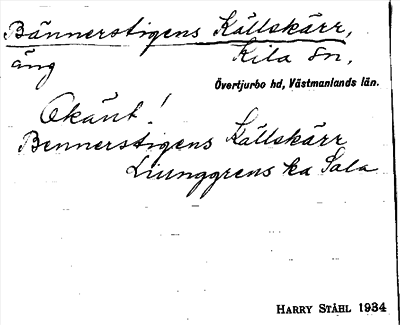 Bännerstigens Källskärr,
äng Kila sn,
Övertjurbo hd, Västmanlands län.
Okänt!
Bennerstigens Källskärr
Ljunggrens ka Sala
HARRY STÅHL 1934